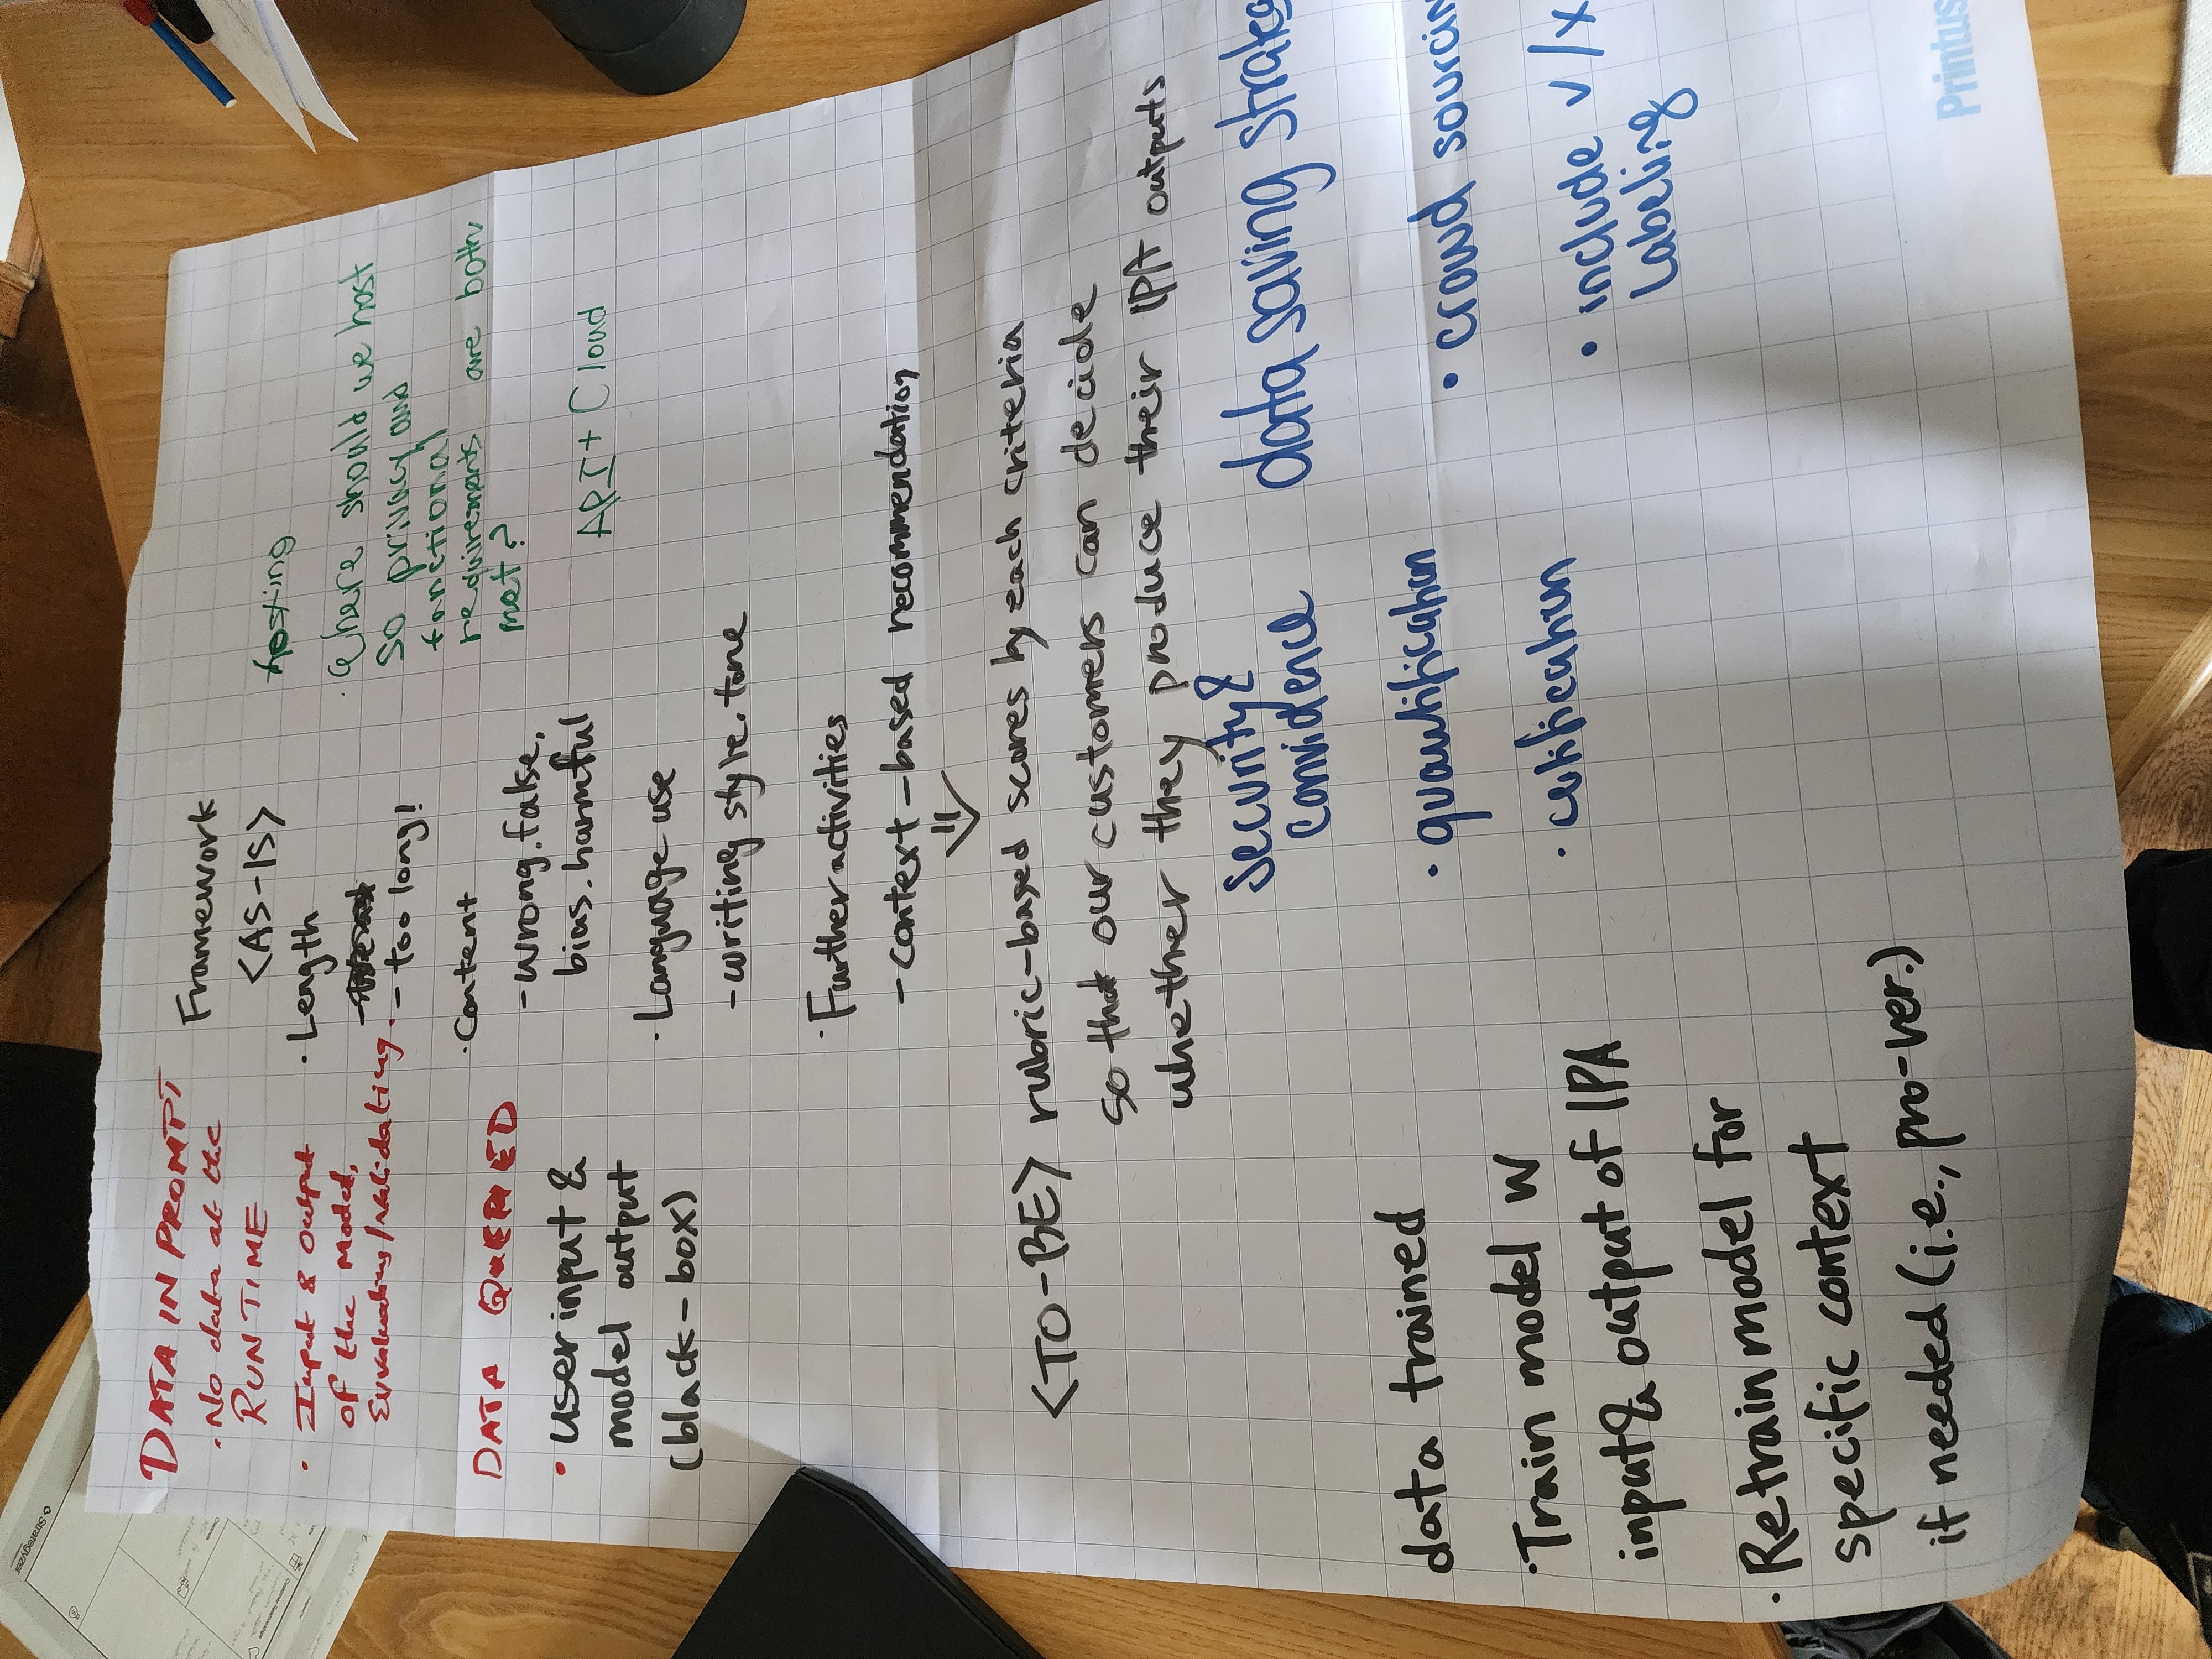 DATA IN PROMPT
· No data at the
RUNTIME
· Input & output
of the model,
Evaluating/validating.
DATA QUERIED
· User input &
model output
(black-box)
Framework
<AS-IS>
· Length
- too long!
· Content
- wrong. fake,
bias. harmful
· Language use
- writing style. tone
· Further activities
- context-based recommendation
Hosting
· Where should we host
so privacy and
functional
requirements are both
met?
API + Cloud
<TO-BE> rubric-based scores by each criteria
so that our customers can decide
whether they produce their IPA outputs
data trained
· Train model w
input & output of IPA
· Retrain model for
specific context
if needed (i.e., pro-ver.)
Security &
convidence
· quantification
· certification
data saving strateg
· crowd sourcin
· include v/x
Labeling
Printus
Strategyzer